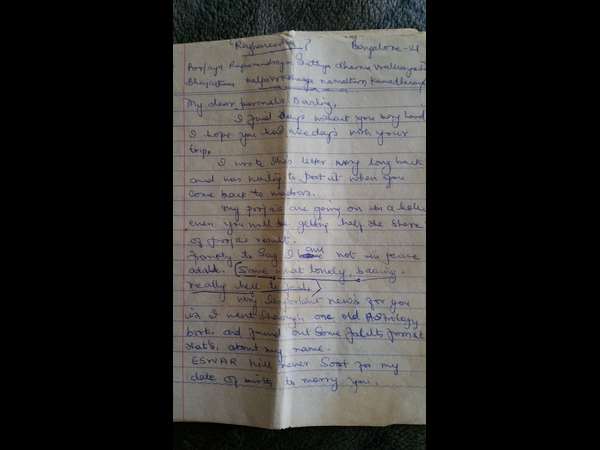 "Ragavendra" Bangalore-21
Poojya Raghavendraya Sathya dharma
Bhajatham Kalpavrikshaya namatham Kamadhenu
My dear Darling,
I find days without you very hard
I hope you had nice days with your
trip.
I wrote this letter very long back
and was waiting to post it when you
come back to madras.
My are going on in a
even you will be getting half the share
of result.
Frankly to say I am not in peace
at all. (Some what lonely, boaring.
really hell to
Very important news for you
is I went through one old Astrology
book and found out some faults from it
that's about my name.
ESWAR will never Soot for my
date of birth to marry you.